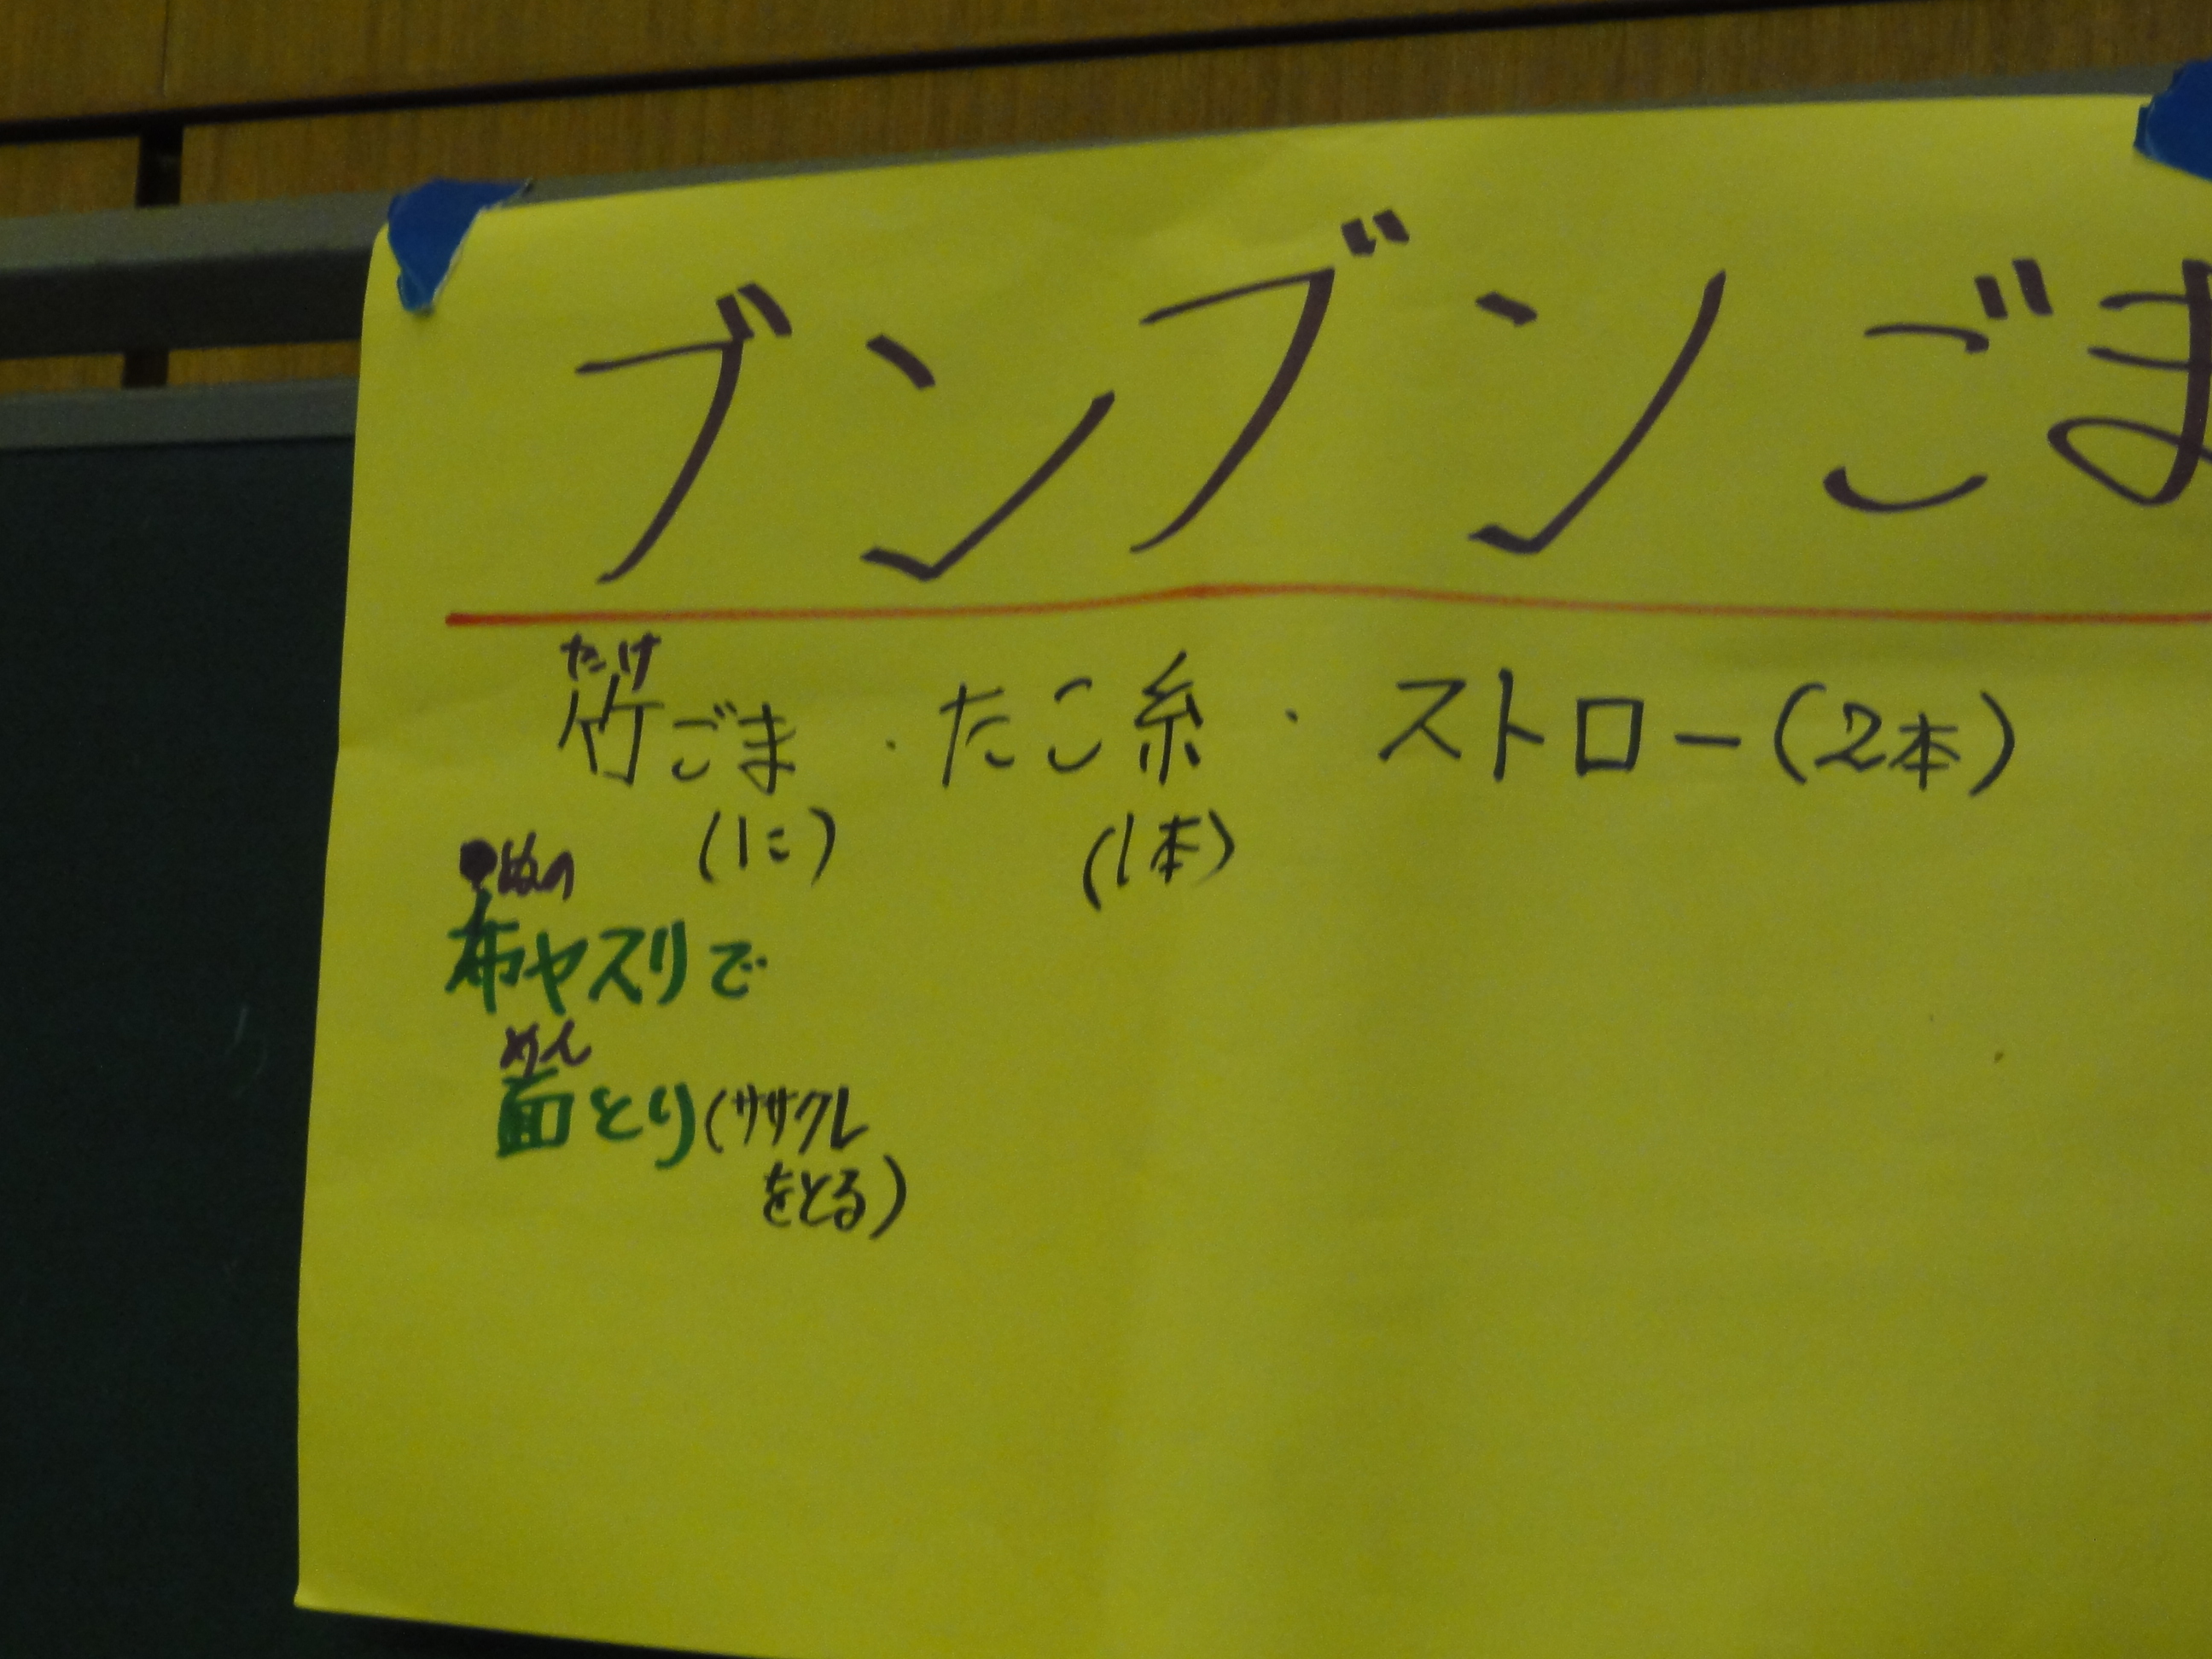 ブンブンごま
たけ
竹ごま・たこ糸・ストロー(2本)
(1こ) (1本)
ぬの
布ヤスリで
めん
面とり(ササクレ
をとる)